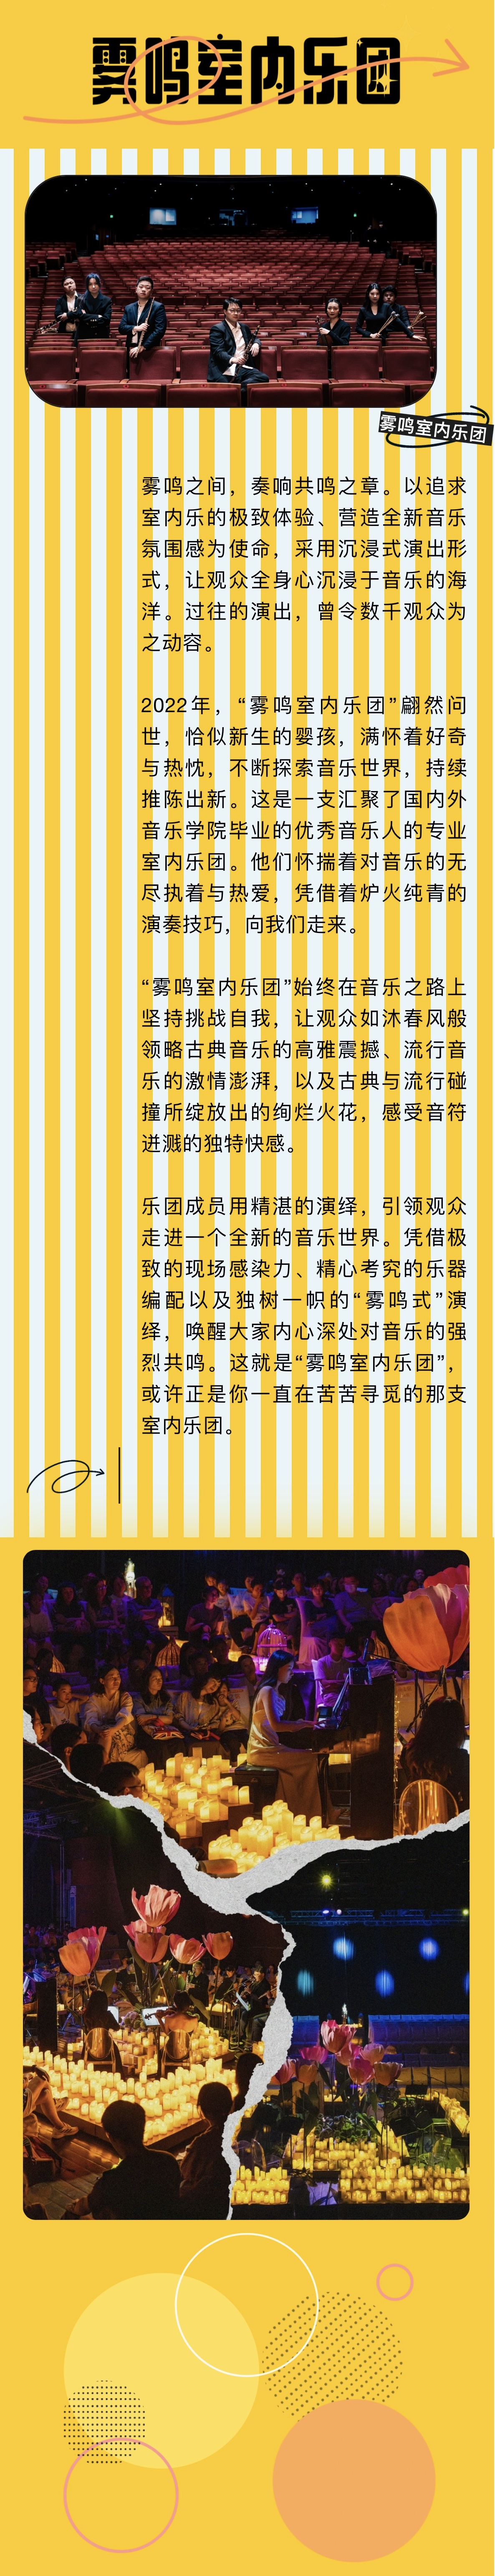 雾鸣室内乐团
雾鸣室内乐团
雾鸣之间，奏响共鸣之章。以追求
室内乐的极致体验、营造全新音乐
氛围感为使命，采用沉浸式演出形
式，让观众全身心沉浸于音乐的海
洋。过往的演出，曾令数千观众为
之动容。
2022年，“雾鸣室内乐团”翩然问
世，恰似新生的婴孩，满怀着好奇
与热忱，不断探索音乐世界，持续
推陈出新。这是一支汇聚了国内外
音乐学院毕业的优秀音乐人的专业
室内乐团。他们怀揣着对音乐的无
尽执着与热爱，凭借着炉火纯青的
演奏技巧，向我们走来。
“雾鸣室内乐团”始终在音乐之路上
坚持挑战自我，让观众如沐春风般
领略古典音乐的高雅震撼、流行音
乐的激情澎湃，以及古典与流行碰
撞所绽放出的绚烂火花，感受音符
迸溅的独特快感。
乐团成员用精湛的演绎，引领观众
走进一个全新的音乐世界。凭借极
致的现场感染力、精心考究的乐器
编配以及独树一帜的“雾鸣式”演
绎，唤醒大家内心深处对音乐的强
烈共鸣。这就是“雾鸣室内乐团”，
或许正是你一直在苦苦寻觅的那支
室内乐团。